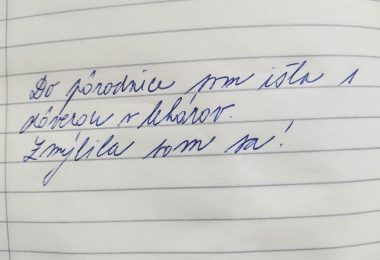 Do pôrodnice som išla s
dôverou v lekárov.
Zmýlila som sa!